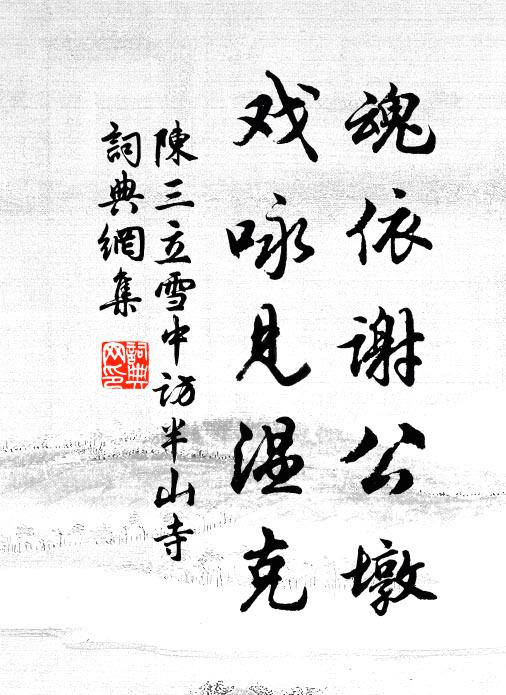 魂依谢公墩
戏咏见温克
陳三立雪中访半山寺
詞典網集
詞典
网印